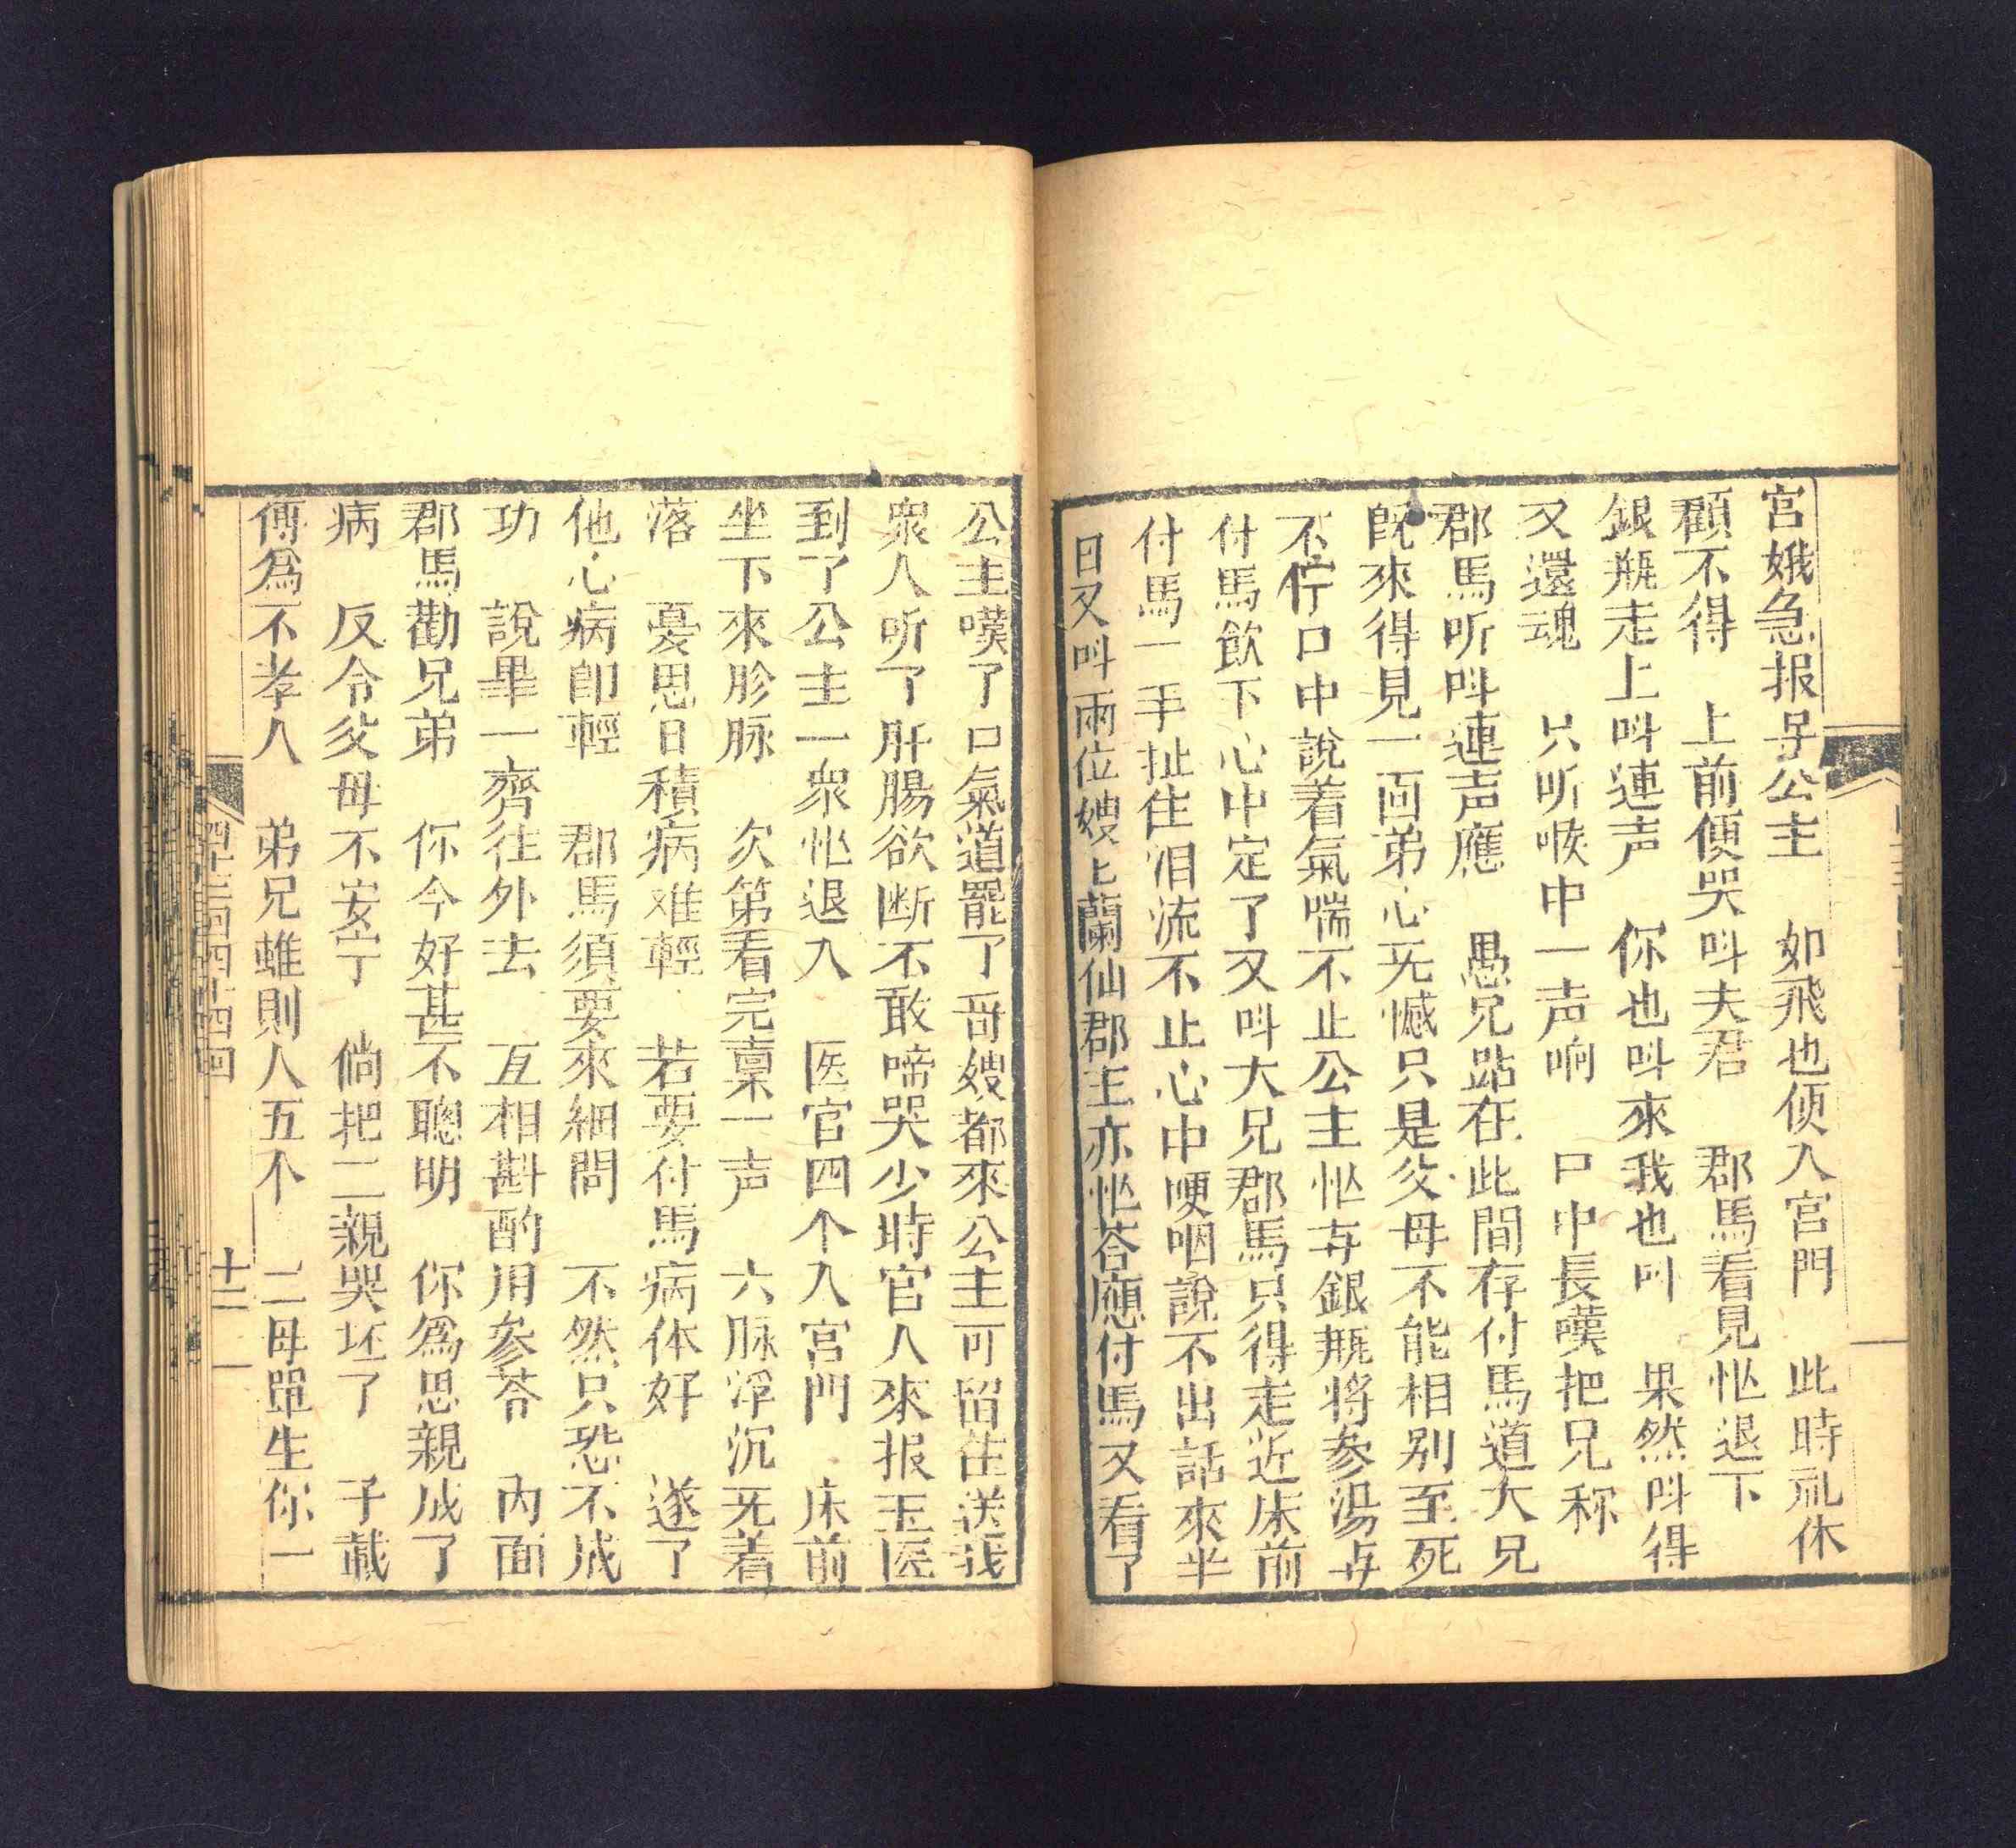 宫娥急报子公主　如飛也便入宫門　此時乱休
顧不得　上前便哭呌夫君　郡馬看見忙退下
銀瓶走上呌連声　你也呌來我也叫　果然呌得
又還魂　只听喉中一声响　口中長嘆把兄称
郡馬听呌連声應　愚兄跕在此間存付馬道大兄
既來得見一面弟心旡憾只是父母不能相别至死
不　口中說着氣喘不止公主忙与銀瓶将参湯与
付馬飲下心中定了又呌大兄郡馬只得走近床前
付馬一手扯住泪流不止心中哽咽說不出話來半
日又呌兩位嫂匕蘭仙郡主亦忙荅應付馬又看了
公主嘆了口氣道罷了哥嫂都來公主可留住送我
衆人听了肝腸欲断不敢啼哭少時官人來报玉医
到了公主一衆忙退入　医官四个入宫門　床前
坐下來胗脉　次第看完禀一声　六脉浮沉旡着
落　憂思日積病难輕　若要付馬病体好　遂了
他心病即輕　郡馬須要來細問　不然只恐不成
功　說畢一齊往外去　互相斟酌用参荅　内面
郡馬勸兄弟　你今好甚不聰明　你爲思親成了
病　反令父母不安宁　倘把二親哭坯了　子載
傳爲不孝人　弟兄雖則人五个　二母單生你一
十二